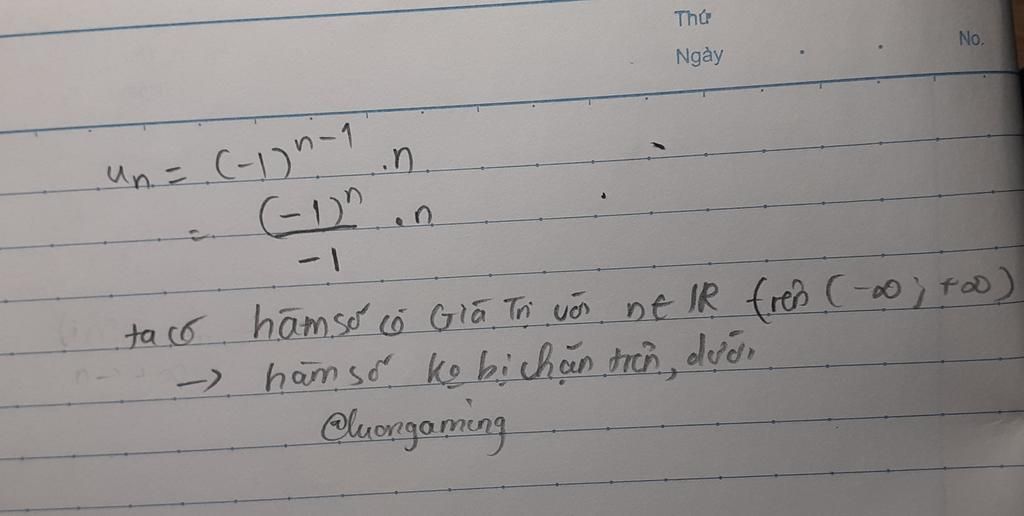 Thứ
Ngày
No.
uₙ = (-1)ⁿ⁻¹ .n
= (-1)ⁿ/-1 .n
ta có hàm số có Giá Trị với n∈ ℝ trên (-∞; +∞)
→ hàm số ko bị chặn trên, dưới.
@luongaming